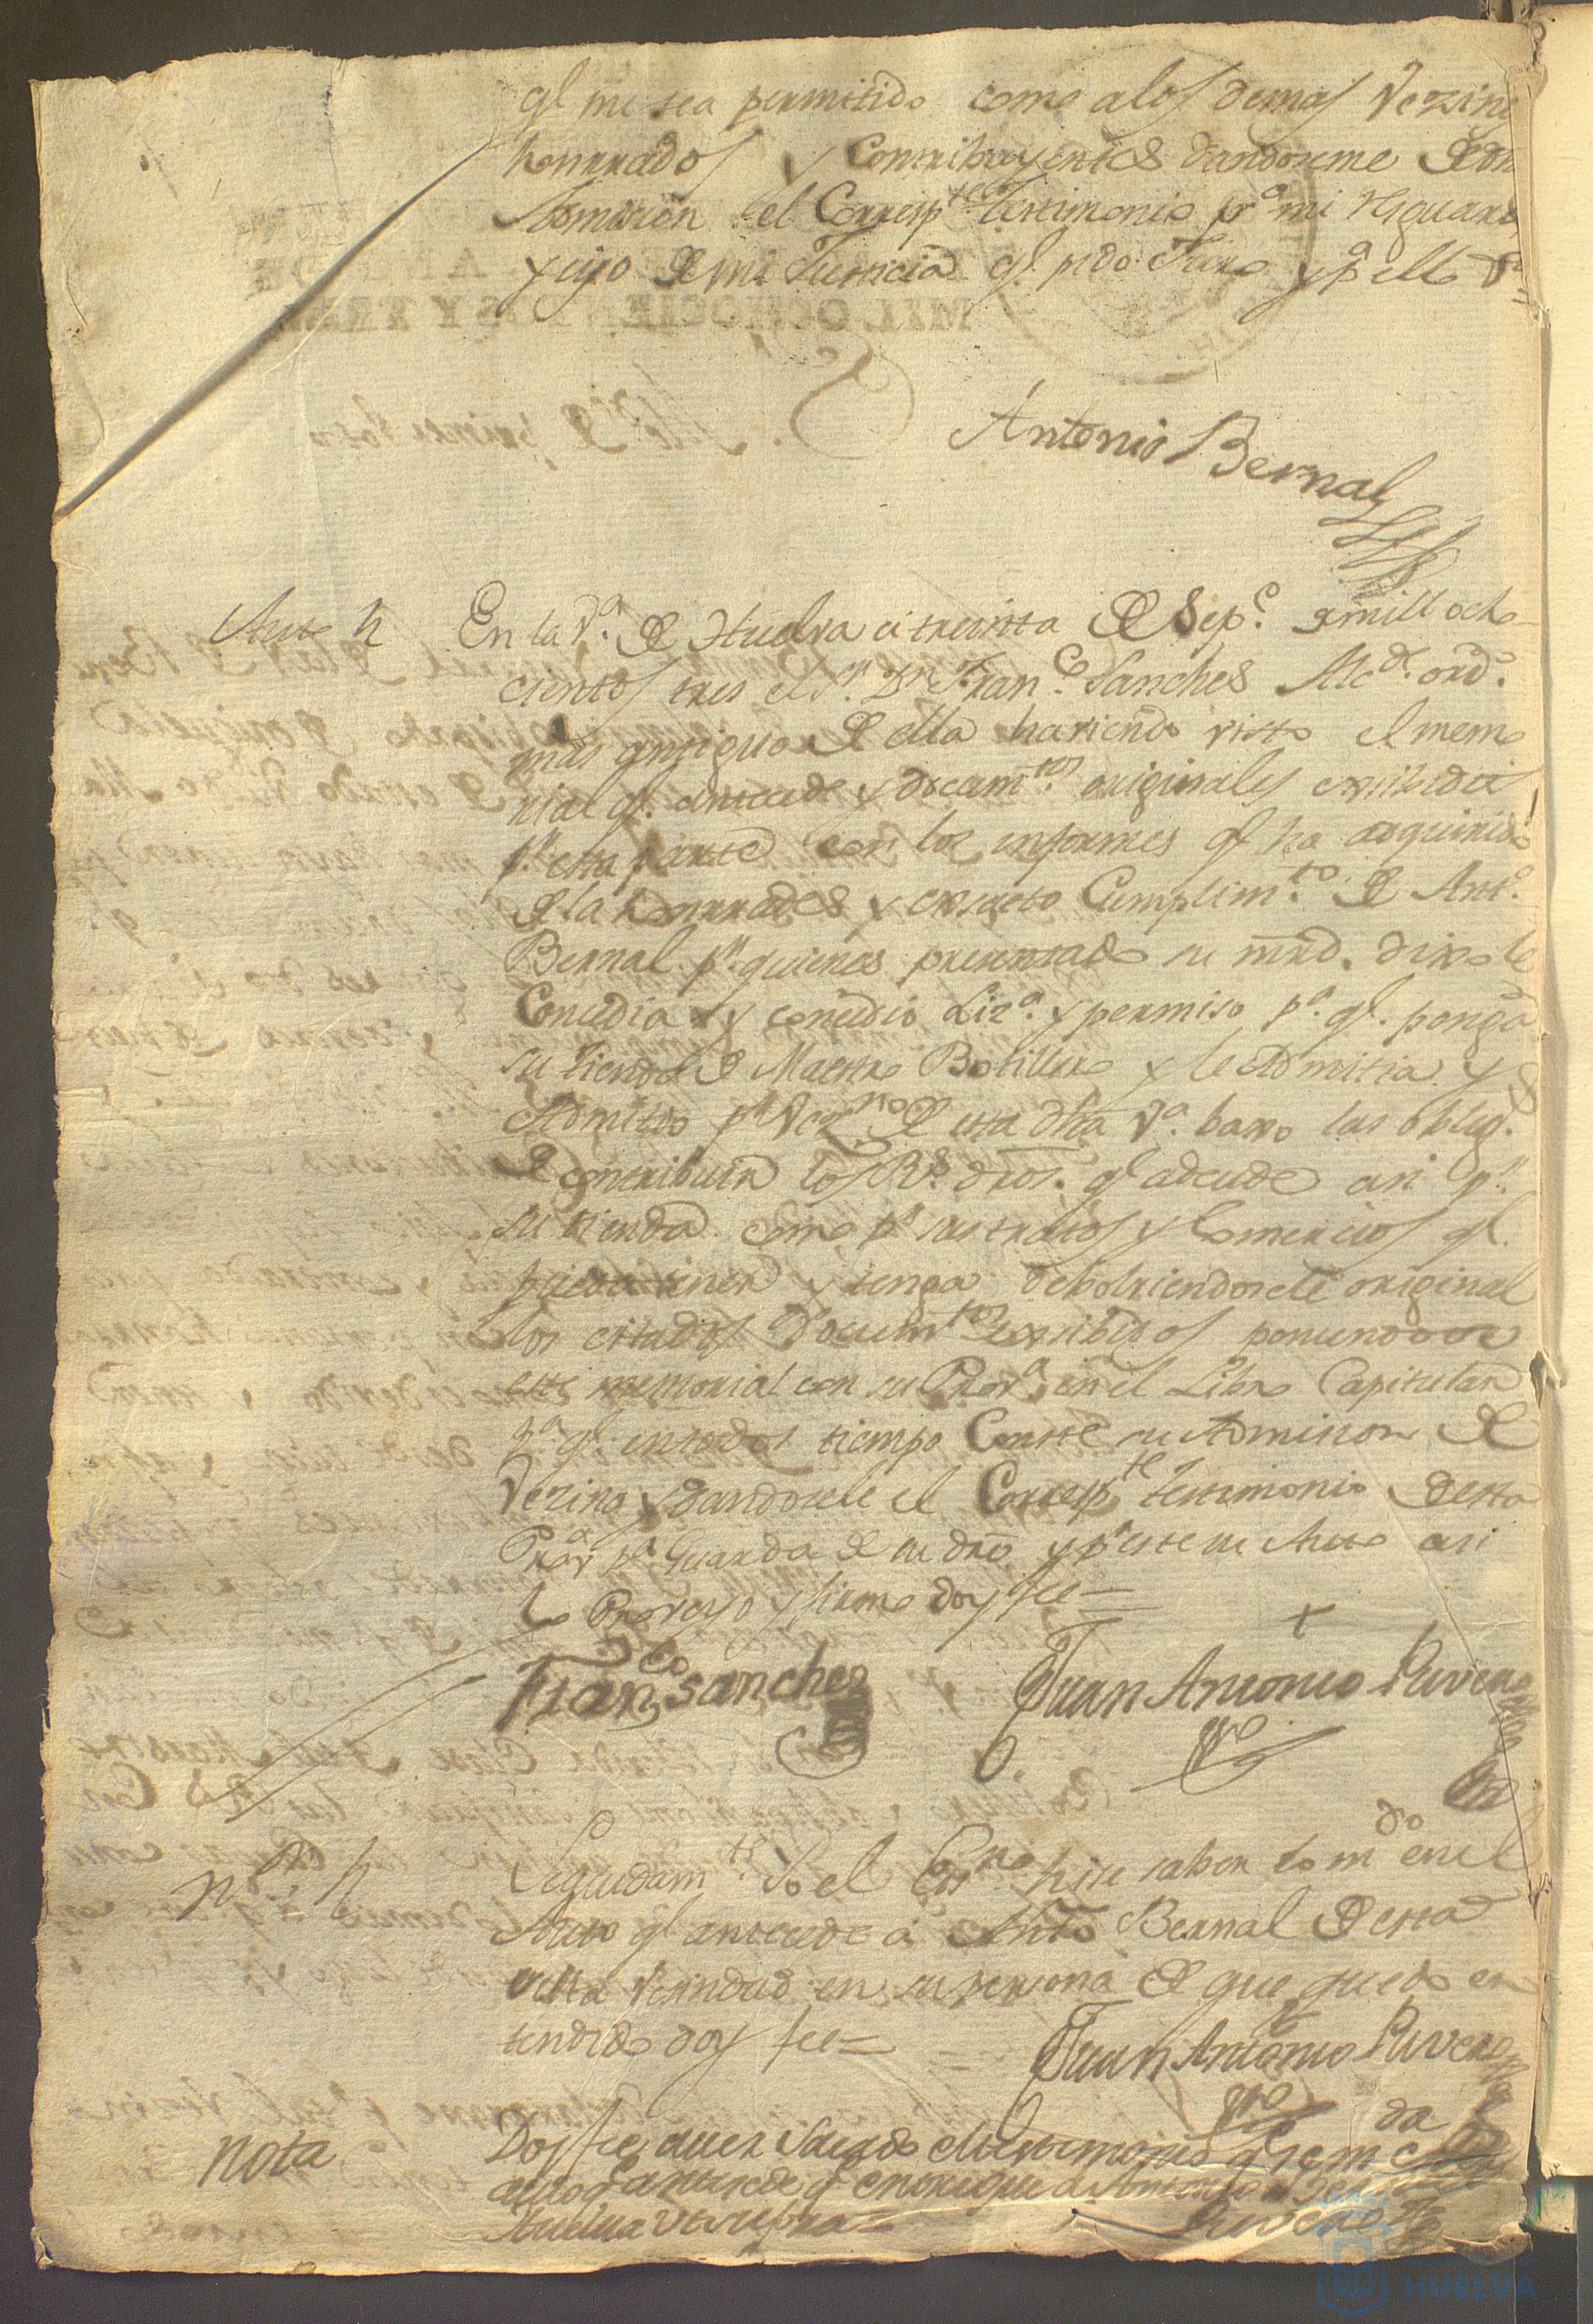 ql. me sea permitido como alos demas Vezin
honrrados y Contribuyentes dandoseme de
el Corresp.te testimonio p.a mi resguar
y ejo de mi Justicia ql. pido Juro y p.a ello
Antonio Bernal
Auto
En la V.a de Huelva a treinta de Sep.e de mill ocho
cientos tres el s.r D.n Fran.co Sanches Alc.de ord.o
mas antiguo de ella haviendo visto el memo
rial ql. antecede y docum.tos originales exsibidos
p.r esta parte con los informes ql ha adquirido
de la honrrades y exsacto Cumplim.to de Ant.o
Bernal p.r quien es presentado su mrd. dixo le
Concedia y concedio Liz.a y permiso p.a ql. ponga
su tienda de Maestro Botillero y le Admitia y
Admitio p.r Vez.no de esta dha V.a baxo las oblig.
de contribuir los R.s dros. ql adeude asi p.r
su tienda como p.r sus tratos y Comercios ql.
pueda tener y tenga debolviendosele original
los citados Docum.tos exsibidos poniendose
este memorial con su Prov.a en el Libro Capitular
p.a ql. en todos tiempo Conste su Admision de
Vezino y dandosele el Corresp.te testimonio desta
Prov.a p.a Guarda de su dro y p.r este su Auto asi
lo Proveyo y firmo doy fee=
Fran.co Sanchez
Juan Antonio Rivero
Seguidam.te Yo el Ess.no hise saber lo m.do en el
Auto ql antecede a Ant.o Bernal de esta
vesindad en su persona de que quedo en
tendido doy fee=
Juan Antonio Rivero
Nota
Doy fee aver Sacado el testimonio q.e se m.da
auto q.e antecede q.e entregue a Antonio Bernal
Huelva ut supra=
Rivero
HUELVA